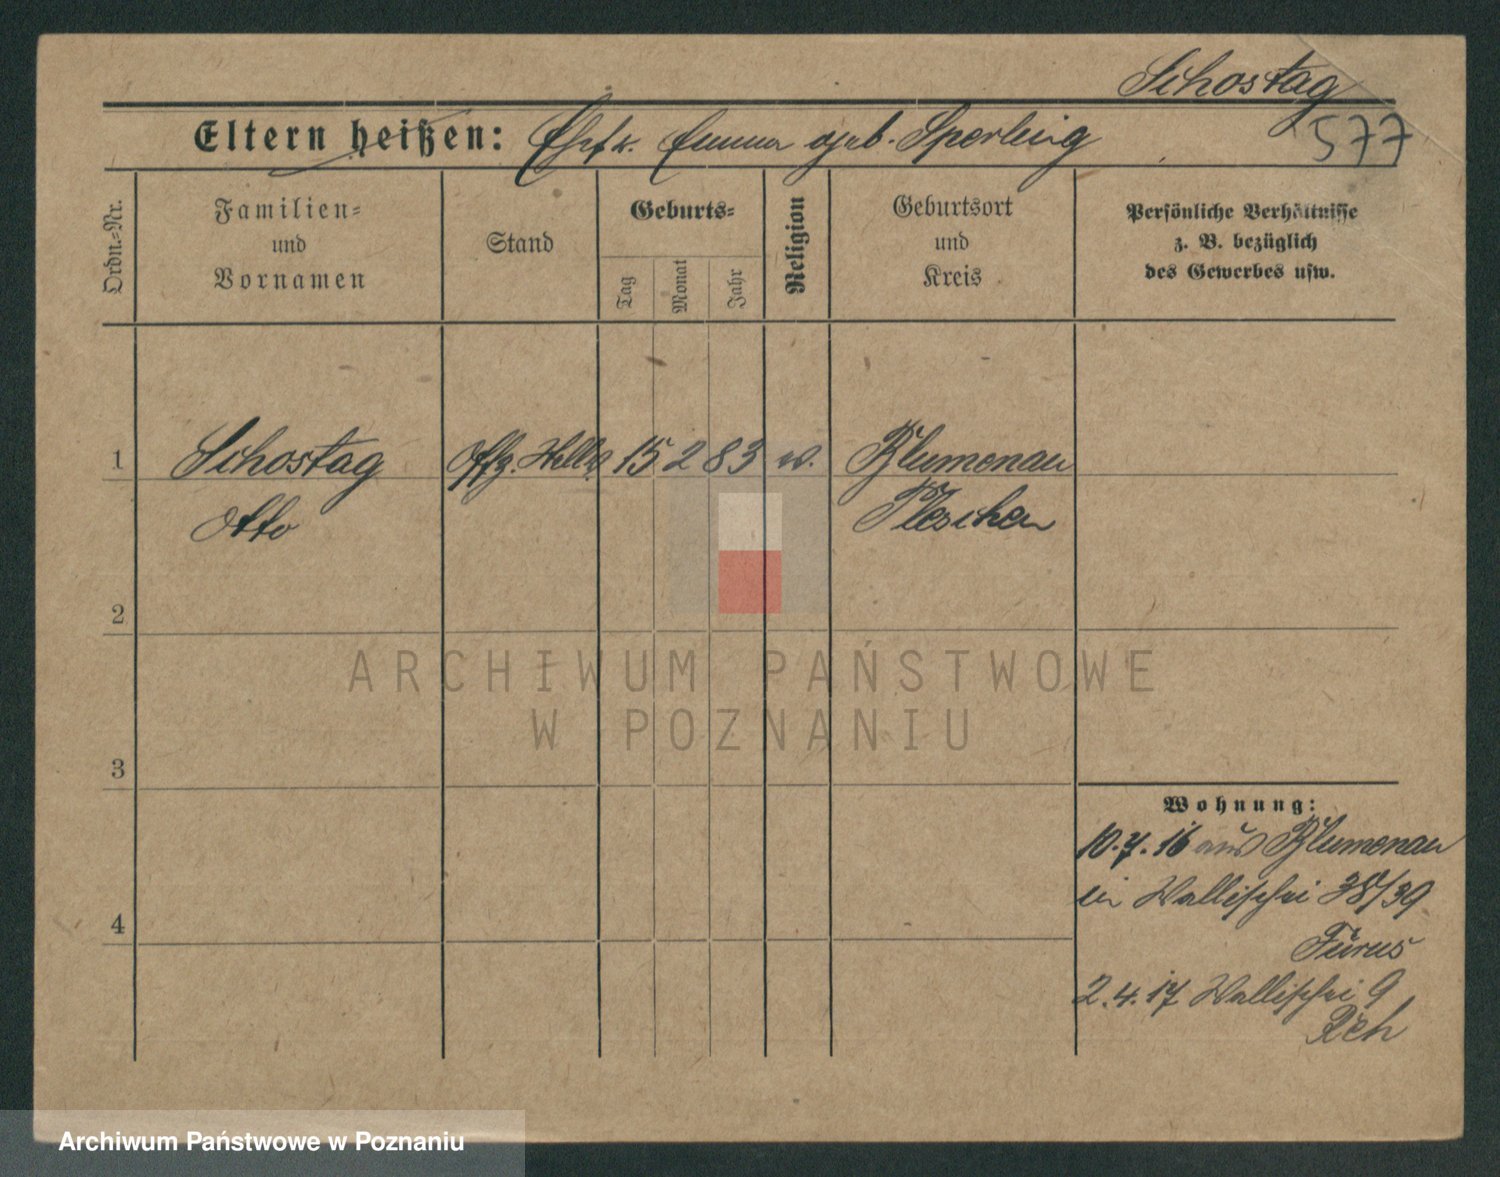 Schostag
577
Eltern heißen: Ehefr. Emma geb. Sperling
Ordn.-Nr.
Familien-
und
Vornamen
Stand
Geburts-
Tag
Monat
Jahr
Religion
Geburtsort
und
Kreis
Persönliche Verhältnisse
z. B. bezüglich
des Gewerbes usw.
1 Schostag Offz. 15 2 83 ev. Blumenau
Otto Pleschen
2
3
4
Wohnung:
10.7.16 aus Blumenau
in Wallischei 38/39
2.4.17 Wallischei 9
ARCHIWUM PAŃSTWOWE
W POZNANIU
Archiwum Państwowe w Poznaniu